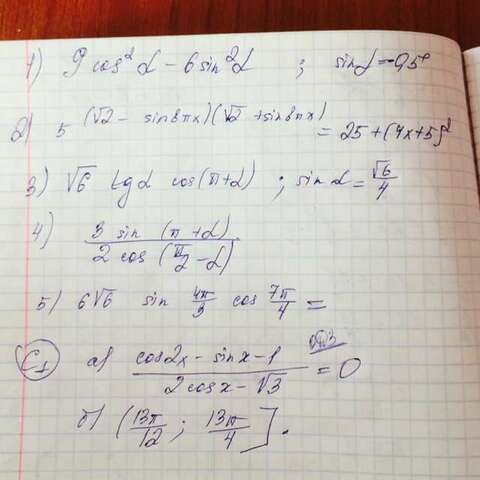 1) 9 cos²α − 6 sin²α ; sinα = −0,5
2) 5^(√2 − sin8πx)(√2 + sin8πx) = 25 + (4x+5)²
3) √6 tgα cos(π+α) ; sinα = √6/4
4) 3 sin(π+α) / 2 cos(π/2 − α)
5) 6√6 sin 4π/3 cos 7π/4 =
C1 а) (cos2x − sinx − 1) / (2cosx − √3) = 0
б) (13π/12 ; 13π/4].